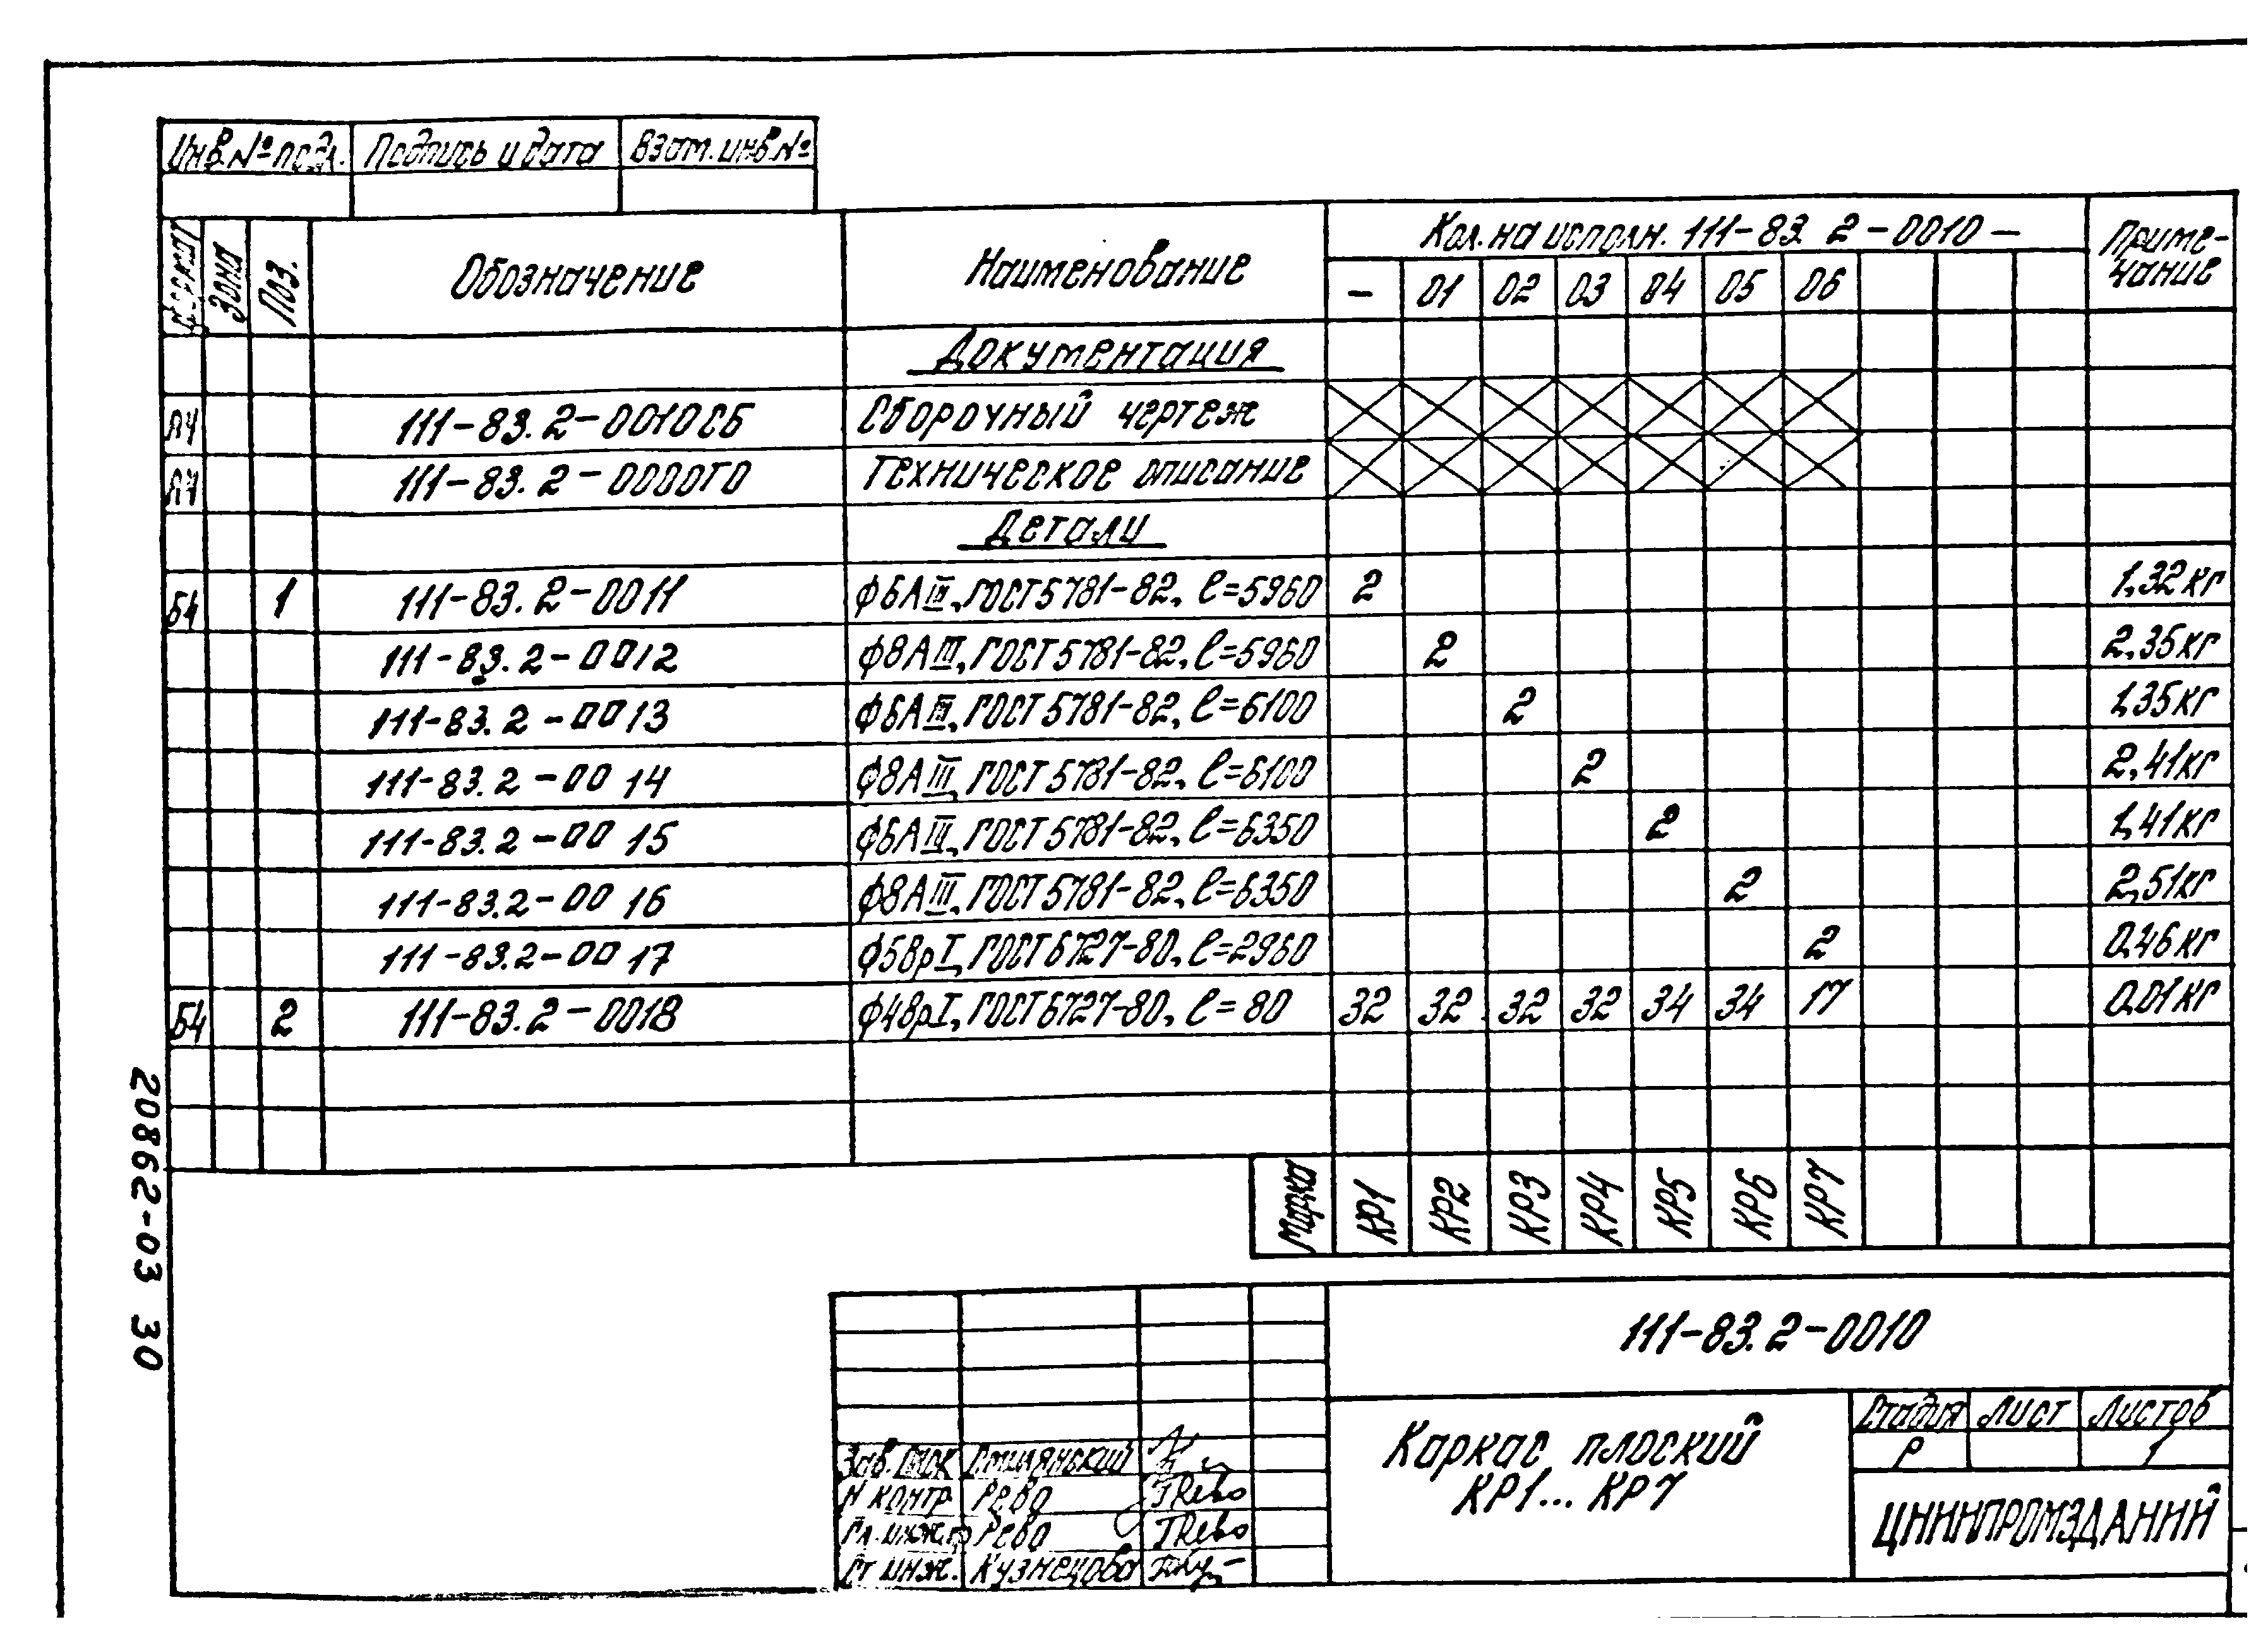 Инв.№ подл. Подпись и дата Взам. инв.№
Формат Зона Поз. Обозначение Наименование Кол. на исполн. 111-83.2-0010- Приме-
чание
- 01 02 03 04 05 06
Документация
А4 111-83.2-0010СБ Сборочный чертеж
А4 111-83.2-0000ТО Техническое описание
Детали
Б4 1 111-83.2-0011 ф6АIII, ГОСТ 5781-82, l=5960 2 1,32 кг
111-83.2-0012 ф8АIII, ГОСТ 5781-82, l=5960 2 2,35 кг
111-83.2-0013 ф6АIII, ГОСТ 5781-82, l=6100 2 1,35 кг
111-83.2-0014 ф8АIII, ГОСТ 5781-82, l=6100 2 2,41 кг
111-83.2-0015 ф6АIII, ГОСТ 5781-82, l=6350 2 1,41 кг
111-83.2-0016 ф8АIII, ГОСТ 5781-82, l=6350 2 2,51 кг
111-83.2-0017 ф5ВрI, ГОСТ 6727-80, l=2960 2 0,46 кг
Б4 2 111-83.2-0018 ф4ВрI, ГОСТ 6727-80, l=80 32 32 32 32 34 34 17 0,01 кг
Марка КР1 КР2 КР3 КР4 КР5 КР6 КР7
20862-03 30
111-83.2-0010
Каркас плоский
КР1... КР7
Стадия Лист Листов
Р 1
ЦНИИПРОМЗДАНИЙ
Зав.
Н контр Рева
Гл. инж. пр Рева
Ст инж. Кузнецова